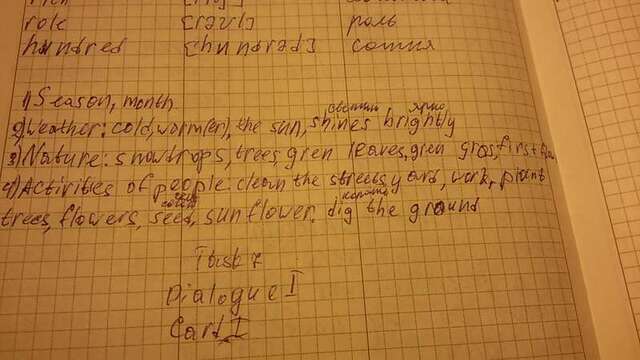 role [rəul] роль
hundred [hʌndrəd] сотня
1) Season, month
светит ярко
2) Weather: cold, worm(er), the sun, shines brightly
3) Nature: snowdrops, trees, gren leaves, gren gras, first
4) Activities of people: clean the streets, yard, work, plant
копать
trees, flowers, seed, sunflower. dig the ground
Task 7
Dialogue I
Card I